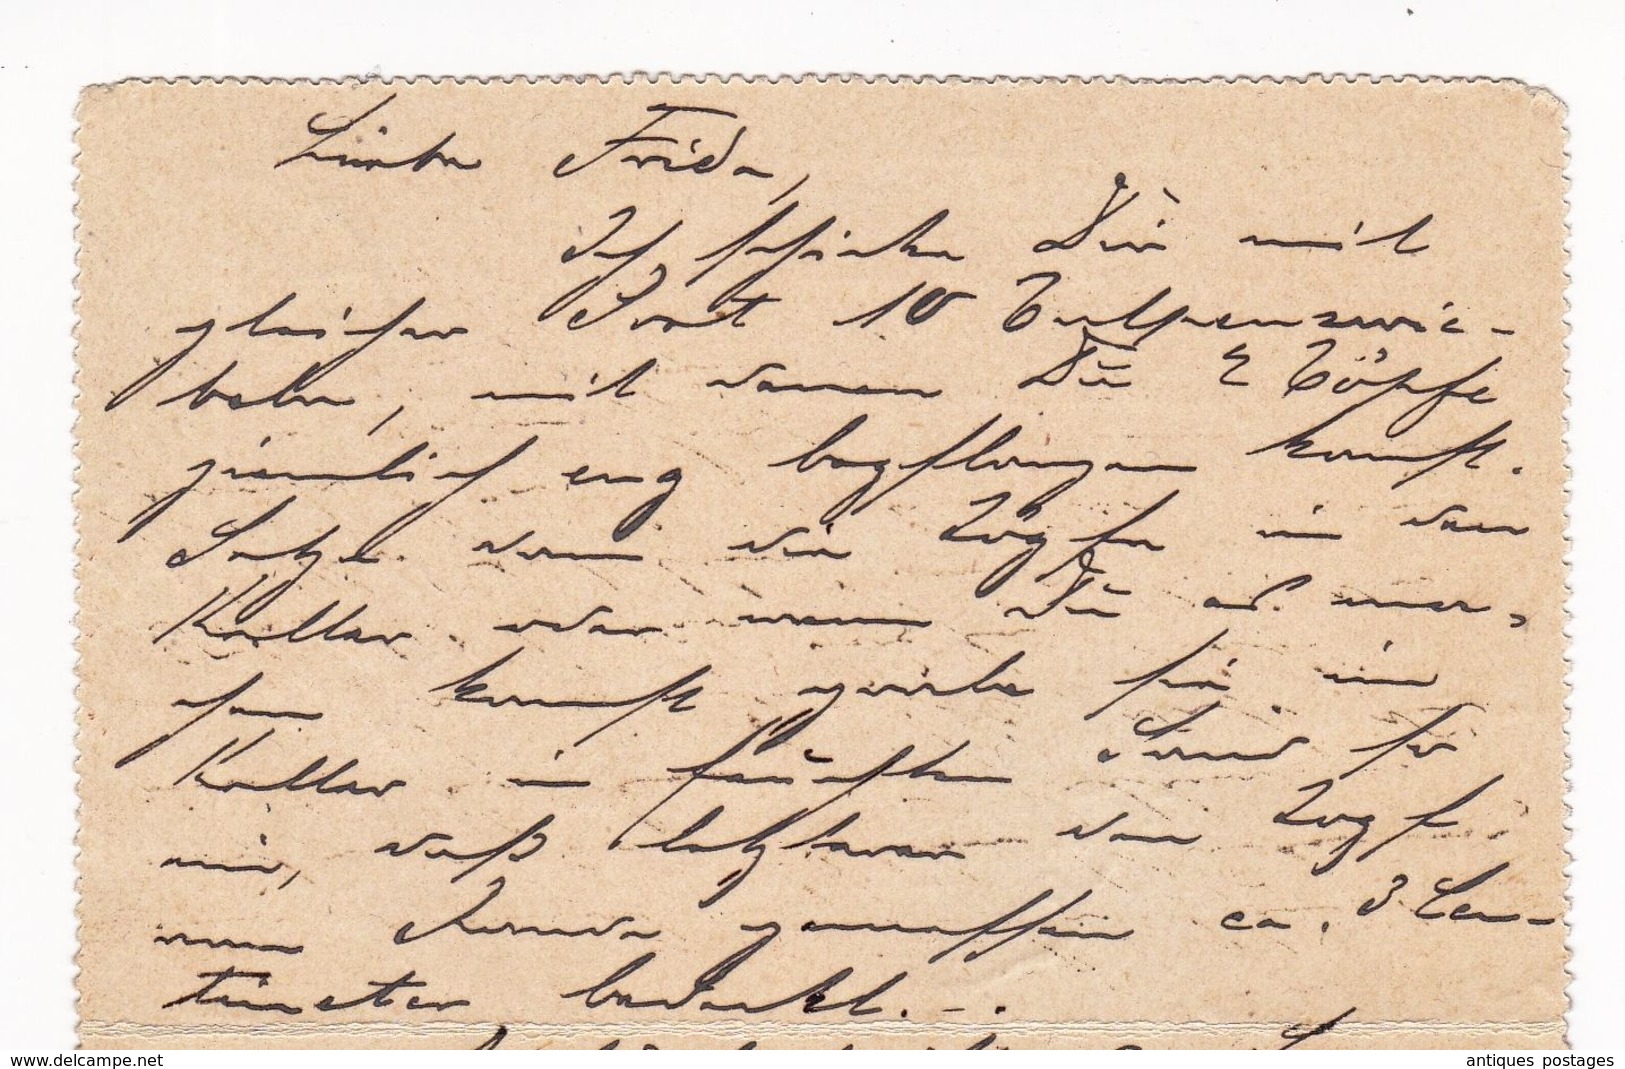 Liebe Frida,
Ich schicke Dir mit
gleicher Post 10 Tulpenzwie-
beln, mit denen Du 2 Töpfe
ziemlich eng bepflanzen kannst.
Setze dann die Töpfe in den
Keller oder wenn Du
kannst grabe sie im
Keller in feuchten Sand
ein, daß letzterer den Topf
vom Rande gemessen ca. 3 Cen-
timeter bedeckt. –.
delcampe.net
antiques postages